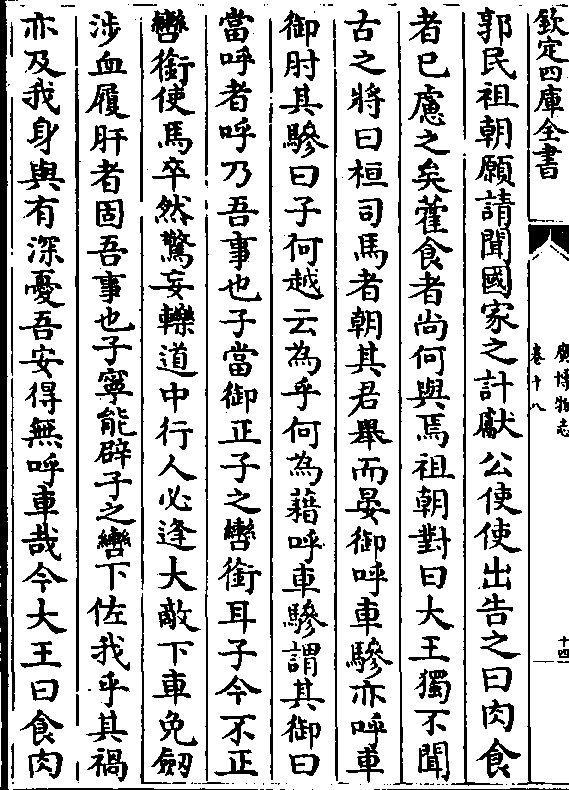 欽定四庫全書
廣博物志
卷十八
十四
郭民祖朝願請聞國家之計獻公使使出告之曰肉食
者已慮之矣藿食者尚何與焉祖朝對曰大王獨不聞
古之將曰桓司馬者朝其君舉而晏御呼車驂亦呼車
御肘其驂曰子何越云為乎何為藉呼車驂謂其御曰
當呼者呼乃吾事也子當御正子之轡銜耳子今不正
轡銜使馬卒然驚妄轢道中行人必逢大敵下車免劒
涉血履肝者固吾事也子寧能辟子之轡下佐我乎其禍
亦及我身與有深憂吾安得無呼車哉今大王曰食肉